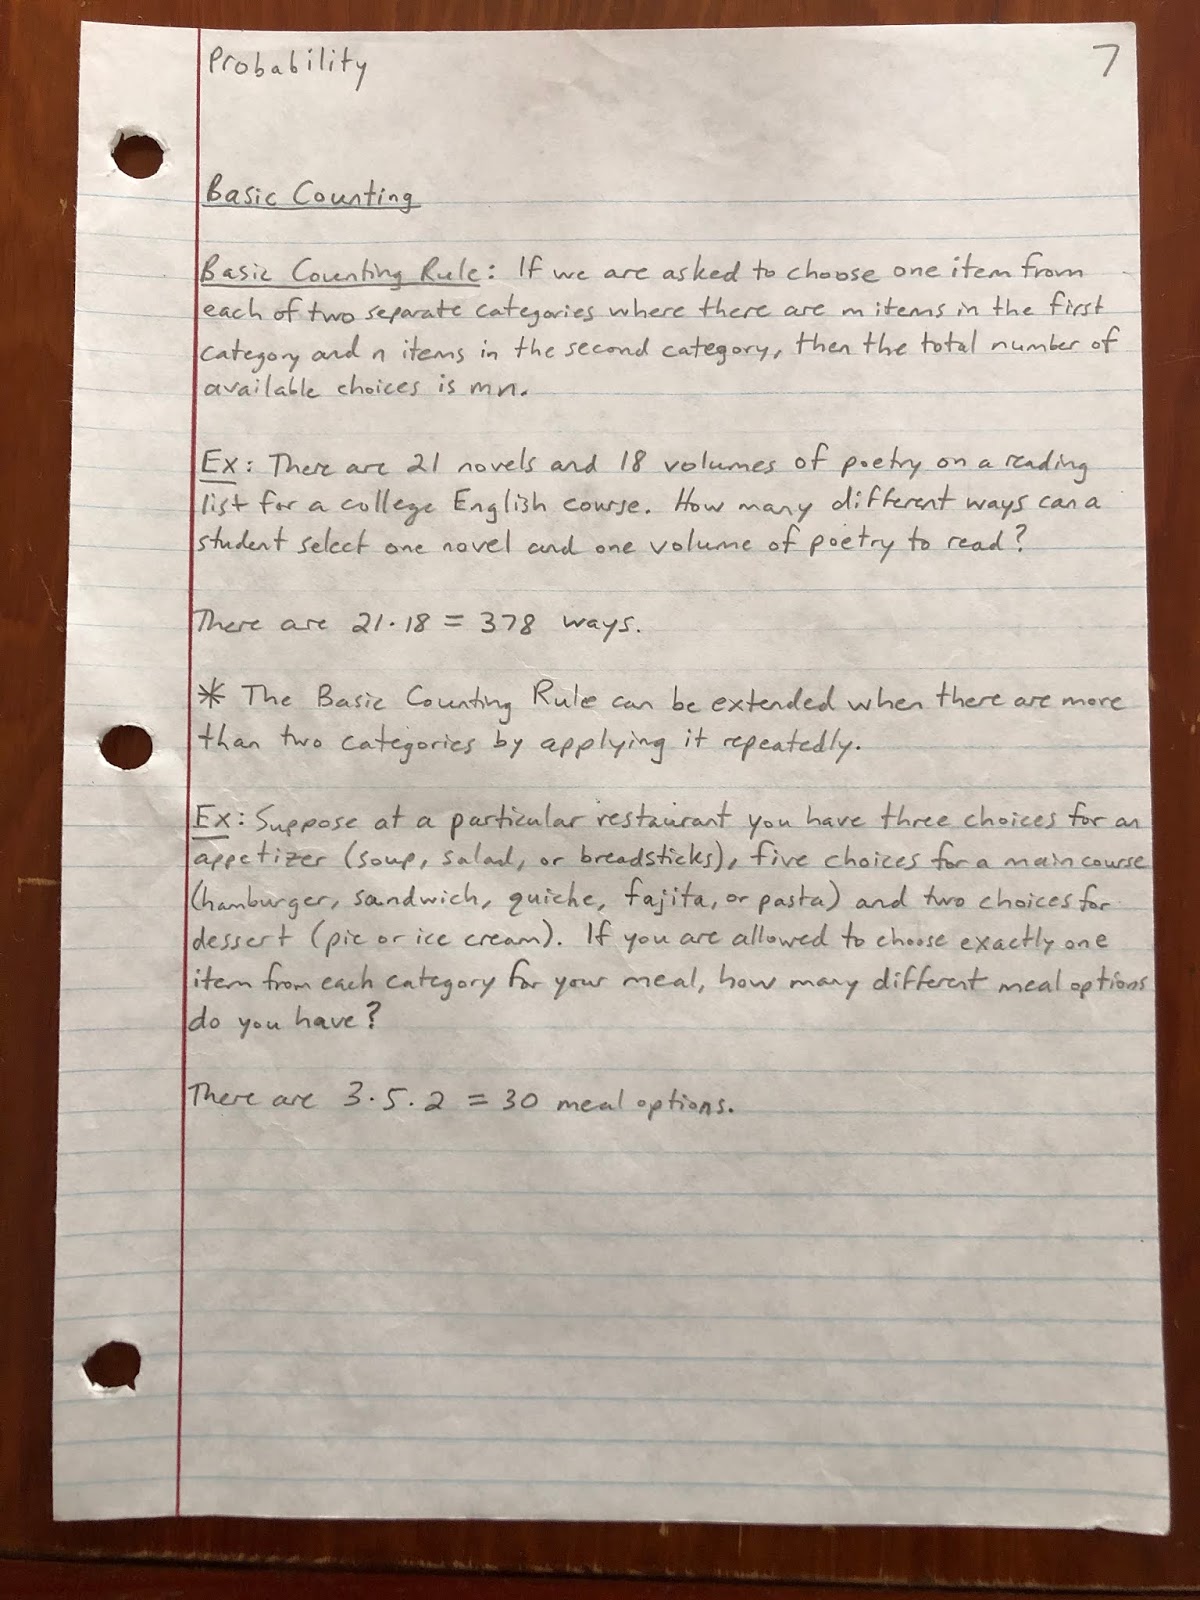 Probability 7
Basic Counting
Basic Counting Rule: If we are asked to choose one item from
each of two separate categories where there are m items in the first
category and n items in the second category, then the total number of
available choices is mn.
Ex: There are 21 novels and 18 volumes of poetry on a reading
list for a college English course. How many different ways can a
student select one novel and one volume of poetry to read?
There are 21·18 = 378 ways.
* The Basic Counting Rule can be extended when there are more
than two categories by applying it repeatedly.
Ex: Suppose at a particular restaurant you have three choices for an
appetizer (soup, salad, or breadsticks), five choices for a main course
(hamburger, sandwich, quiche, fajita, or pasta) and two choices for
dessert (pie or ice cream). If you are allowed to choose exactly one
item from each category for your meal, how many different meal options
do you have?
There are 3·5·2 = 30 meal options.